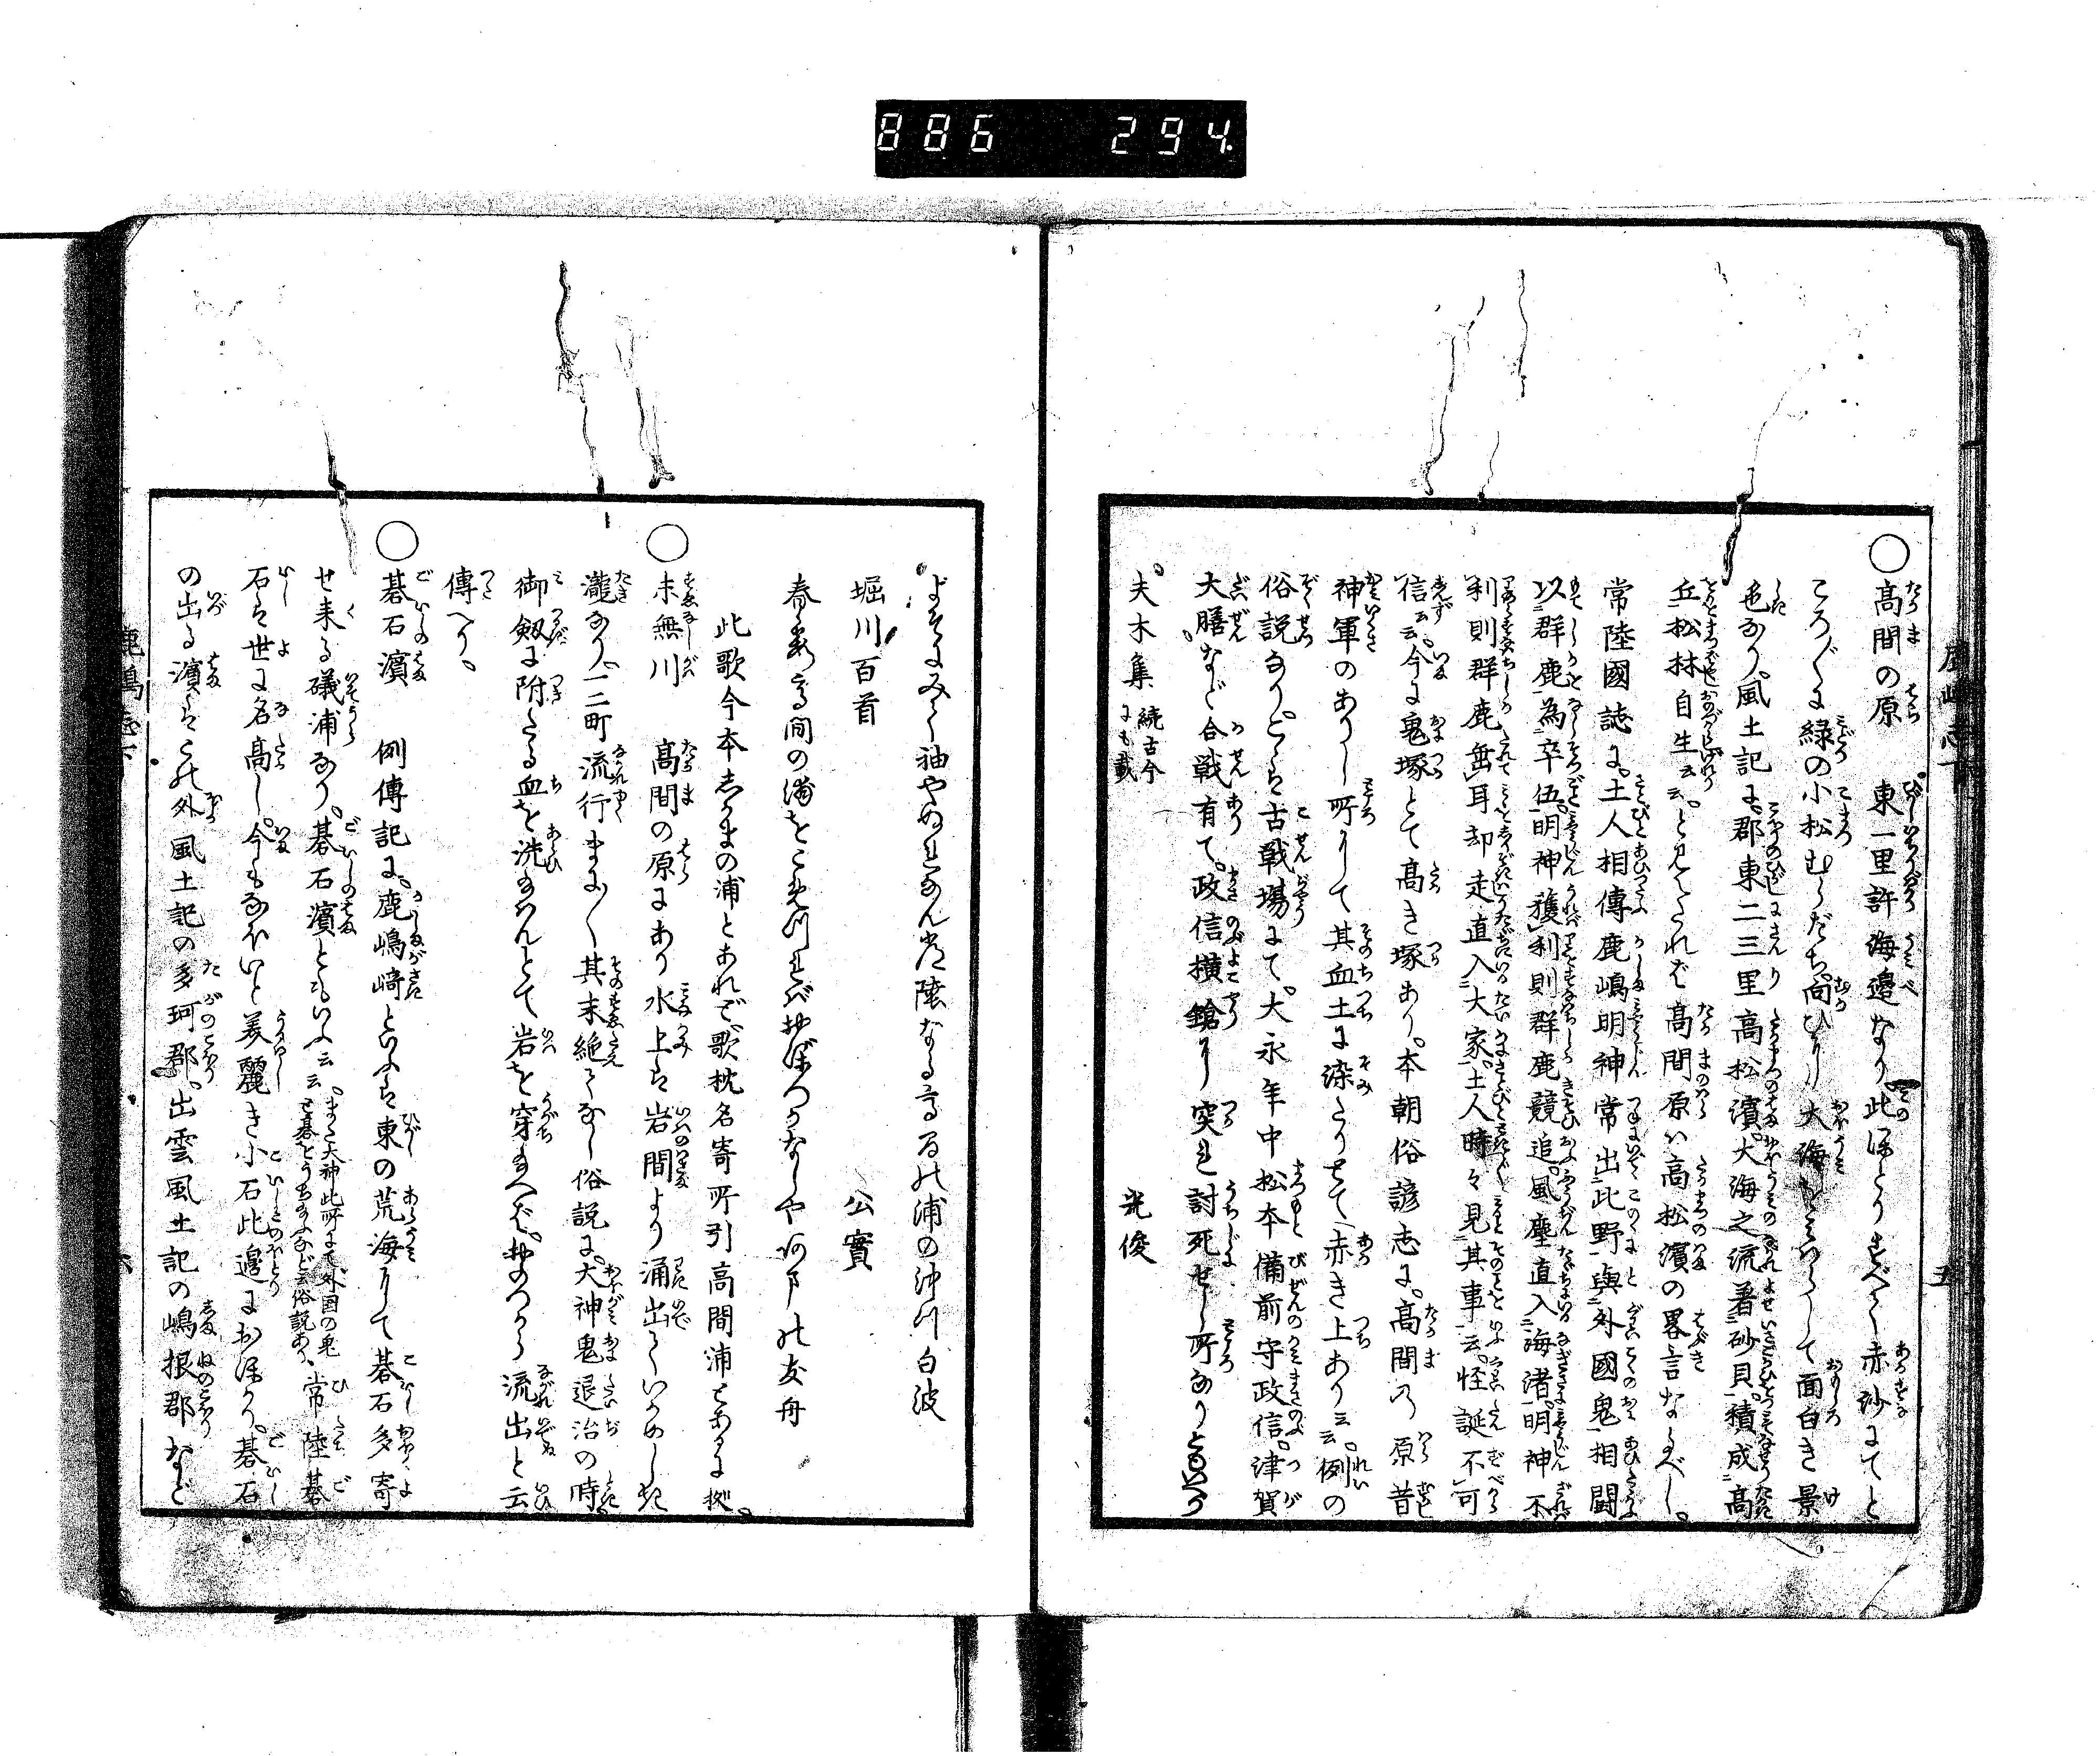 886 294
鹿嶋志下
五
○高間の原 東一里許海邊なり此ほとりすべて赤沙にてと
ころ〴〵に緑の小松むらだち向ひハ大海をみわたして面白き景
色なり。風土記に。郡東二三里高松濱。大海之流着砂貝。積成高
丘。松林自生云云。と見えたれば高間原ハ高松濱の畧言なるべし。
常陸國誌に。土人相傳鹿嶋明神常出此野與外國鬼相闘
以群鹿為卒伍。明神獲利則群鹿競追。風塵直入海渚。明神不
利則群鹿岳耳却走直入大家。土人時々見其事云。怪誕不可
信云云。今に鬼塚とて高き塚あり。本朝俗諺志に。高間の原昔
神軍のありし所にして其血土に染たりとて赤き土あり云云。例の
俗説なりこゝは古戦場にて。大永年中松本備前守政信。津賀
大膳など合戦有て。政信横鎗に突れ討死せし所なりともいふ
夫木集 続古今にも載 光俊
よそにみる袖やぬれなん常陸なる高まの浦の沖川白波
堀川百首 公實
春霞高間の浦をこめつればおぼつかなしや阿まの友舟
此歌今本志かまの浦とあれど歌枕名寄所引高間浦とあるに拠。
○末無川 高間の原にあり水上は岩間より涌出ていかめしき
瀧なり。一二町流行まゝに其末絶てなし俗説に。大神鬼退治の時
御劔に附たる血を洗給はんとて岩を穿給へば。おのつから流出と云
傳へり。
○碁石濱 例傳記に。鹿嶋﨑といふは東の荒海にて碁石多寄
せ来る礒浦なり。碁石濱ともいふ云云。また大神此所にて外国の鬼と碁をうちたまふなど云俗説あり。常陸碁
石は世に名高し。今もなほいと美麗き小石此邊におほかり。碁石
の出る濱はこの外風土記の多珂郡。出雲風土記の嶋根郡など
鹿嶋志下